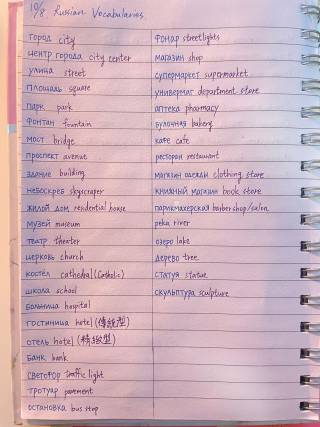 10/8 Russian Vocabularies
город city
центр города city center
улица street
площадь square
парк park
фонтан fountain
мост bridge
проспект avenue
здание building
небоскрёб skyscraper
жилой дом residential house
музей museum
театр theater
церковь church
костёл cathedral (Catholic)
школа school
больница hospital
гостиница hotel (傳統型)
отель hotel (精緻型)
банк bank
светофор traffic light
тротуар pavement
остановка bus stop
фонар streetlights
магазин shop
супермаркет supermarket
универмаг department store
аптека pharmacy
булочная bakery
кафе cafe
ресторан restaurant
магазин одежды clothing store
книжный магазин book store
парикмахерская barbershop/salon
река river
озеро lake
дерево tree
статуя statue
скульптура sculpture